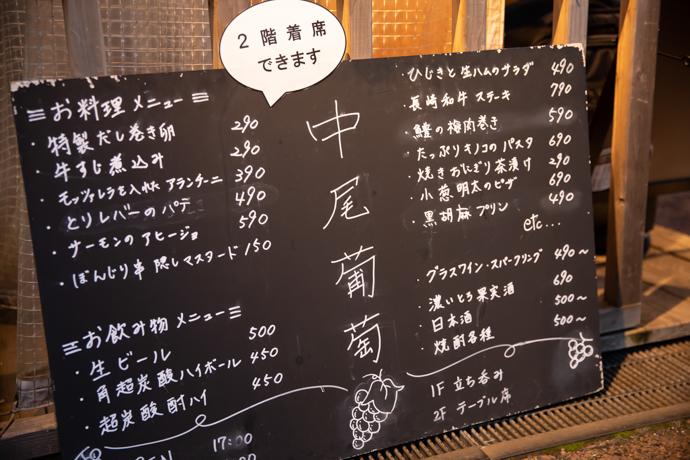 2階着席
できます
≡お料理メニュー≡
・特製だし巻き卵 290
・牛すじ煮込み 290
・モッツァレラを入れた アランチーニ 390
・とりレバーのパテ 490
・サーモンのアヒージョ 590
・ぼんじり串 隠しマスタード 150
≡お飲み物メニュー≡
・生ビール 500
・角超炭酸ハイボール 450
・超炭酸酎ハイ 450
17:00
中尾葡萄
・ひじきと生ハムのサラダ 490
・長崎和牛ステーキ 790
・鱧の梅肉巻き 590
・たっぷりキノコのパスタ 690
・焼きおにぎり茶漬け 290
・小葱明太のピザ 690
・黒胡麻プリン 490
etc...
・グラスワイン・スパークリング 490〜
・濃いとろ果実酒 690
・日本酒 500〜
・焼酎各種 500〜
1F 立ち呑み
2F テーブル席